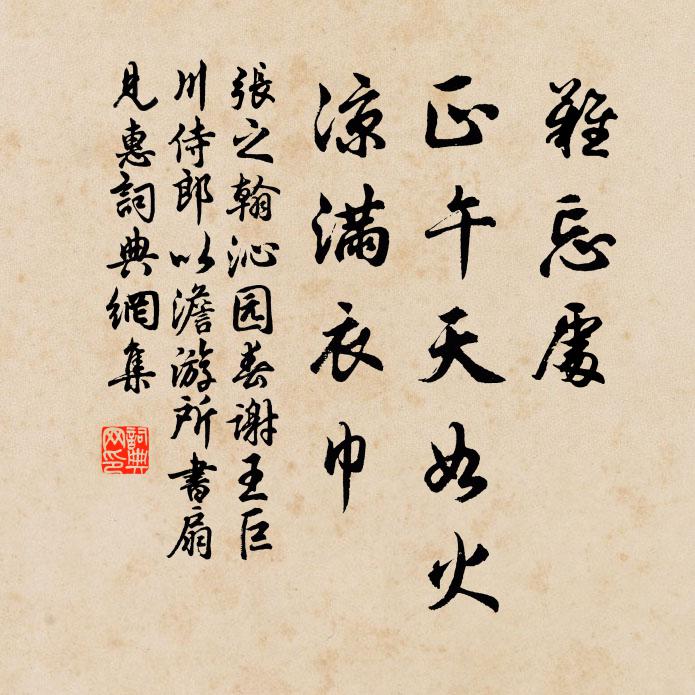 難忘處
正午天如火
涼滿衣巾
張之翰沁园春謝王巨
川侍郎以澹游所書扇
見惠詞典網集
詞典
网印